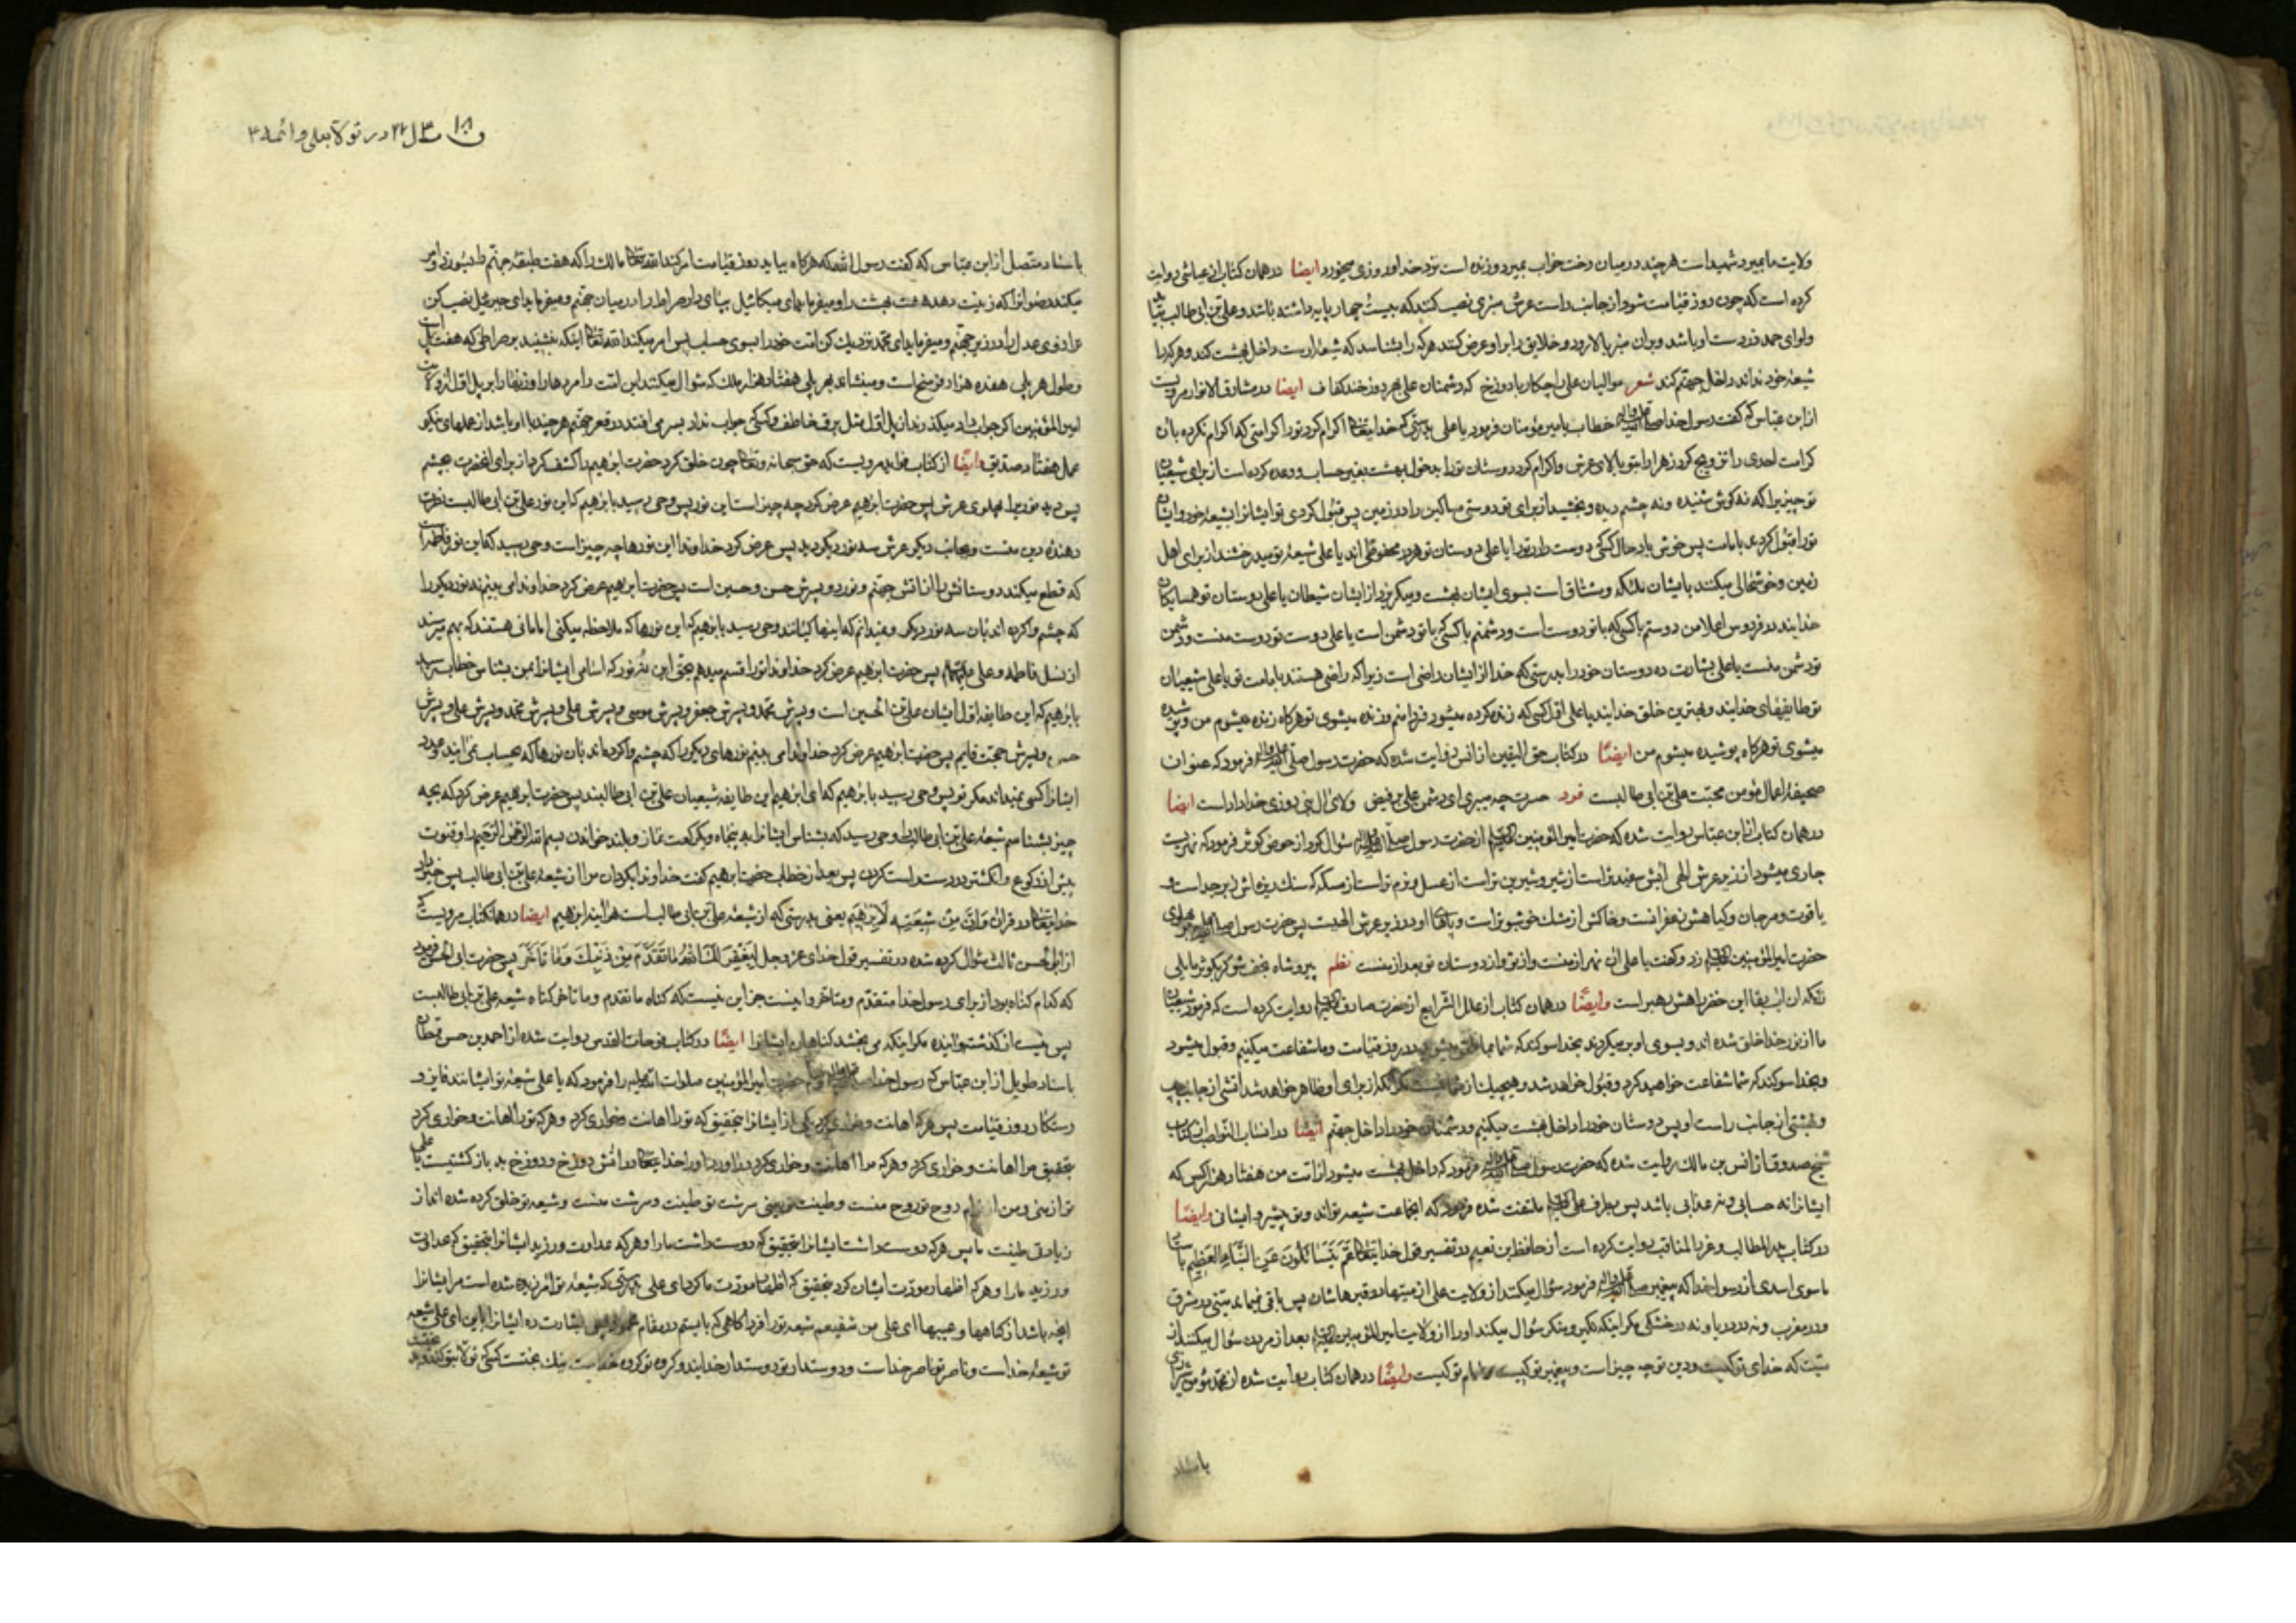 ولایت ما بمیرد شهید است هر چند در میان رخت خواب بمیرد و زنده است نزد خدا و روزی میخورد ایضا در همان کتاب از عیاشی روایت
کرده است که چون روز قیامت شود از جانب راست عرش منبری نصب کنند که بیست چهار پایه داشته باشد و علی بن ابی طالب بیاید
و لوای حمد در دست او باشد و بر آن منبر بالا رود و خلایق را بر او عرض کنند هر که را بشناسد که شیعه اوست داخل بهشت کند و هر که را
شیعه خود نداند داخل جهنم کند شعر موالیان علی را چکار با دوزخ که دشمنان علی بهر دوزخند کفاف ایضا در مشارق الانوار مرویست
از ابن عباس که گفت رسول خدا صلی الله علیه و اله خطاب بامیر مؤمنان فرمود یا علی بدرستی که خدایتعالی اکرام کرد تو را کرامتی که اکرام نکرده بان
کرامت احدی را تزویج کرد زهرا را بتو بالای عرش و اکرام کرد دوستان تو را بدخول بهشت بغیر حساب و وعده کرده است از برای شیعیان
تو چیزیرا که نه گوش شنیده و نه چشم دیده و بخشید از برای تو دوستی مساکین را در زمین پس قبول کردی تو ایشانرا بشیعه خود و ایشان
تو را قبول کردند بامامت پس خوش باد حال کسی که دوست دارد تو را یا علی دوستان تو هر محفوظی اند یا علی شیعه تو میدرخشند از برای اهل
زمین و خوشحالی میکنند بایشان ملائکه و مشتاق است بسوی ایشان بهشت و میگریزد از ایشان شیطان یا علی دوستان تو همسایگان
خدایند در فردوس اعلا من دوستم با کسی که با تو دوست است و دشمنم با کسی که با تو دشمن است یا علی دوست تو دوست منست و دشمن
تو دشمن منست یا علی بشارت ده دوستان خود را بدرستی که خدا از ایشان راضی است زیرا که راضی هستند بامامت تو یا علی شیعیان
تو طایفهای خدایند و بهترین خلق خدایند یا علی اول کسی که زنده کرده میشود فردا منم و زنده میشوی تو هر گاه زنده میشوم من و پوشیده
میشوی تو هر گاه پوشیده میشوم من ایضًا در کتاب حق الیقین از انس روایت شده که حضرت رسول صلی الله علیه و اله فرمود که عنوان
صحیفه اعمال مؤمن محبت علی بن ابی طالبست فرد حسرت چه میبری ای دشمن علی بر فیض ولای ال نبی روزی خداداد است ایضا
در همان کتاب از ابن عباس روایت شده که حضرت امیر المؤمنین از حضرت رسول صلی الله علیه و اله سؤال کرد از حوض کوثر فرمود که نهریست
جاری میشود از زیر عرش الهی ابش سفیدتر است از شیر و شیرین تر است از عسل و نرم تر است از مسکه که سنك ریزه اش زبرجد است و
یاقوت و مرجان و گیاهش زعفرانست و خاکش از مشك خوشبوتر است و پاهای او در زیر عرش الهیست پس حضرت رسول
حضرت امیر المؤمنین زد و گفت یا علی ان نهر از منست و از تو و از دوستان تو بعد از منست نظم
زانکه ان اب بقا این خضر راهش رهبر است وایضًا در همان کتاب از علل الشرایع از حضرت صادق روایت کرده است که فرمود شیعیان
ما از نور خدا خلق شده اند و بسوی او بر میگردند بخدا سوکند که شما بما ملحق میشوید در روز قیامت و ما شفاعت میکنیم و قبول میشود
و بخدا سوکند که شما شفاعت خواهید کرد و قبول خواهد شد و هیچیك از شما نیست مگر انکه از برای او ظاهر خواهد شد اتشی از جانب چپ
و بهشتی از جانب راست او پس دوستان خود را داخل بهشت میکنیم و دشمنان خود را داخل جهنم ایضًا در
شیخ صدوق از انس بن مالك روایت شده که حضرت رسول صلی الله علیه و اله فرمود که داخل بهشت میشود از امت من هفتاد هزار کس که
ایشانرا نه حسابی و نه عذابی باشد پس بطرف علی ملتفت شده فرمود که اینجماعت شیعه تو اند و تو پیشرو ایشانی وایضًا
در کتاب روایت کرده است از حافظ بن نعیم در تفسیر قول خدایتعالی عَمَّ یَتَسَائَلُونَ عَنِ النَّبَاءِ العَظیم
ما سوی اسدی از رسول خدا که پیغمبر صلی الله علیه و اله فرمود سؤال میکنند از ولایت علی از میتها در قبرهاشان پس باقی نمیماند میتی در مشرق
و در مغرب و نه در دریا و نه در خشکی مگر اینکه نکیر و منکر سؤال میکنند او را از ولایت امیر المؤمنین بعد از مردن سؤال میکنند از
میت که خدای تو کیست و دین تو چه چیز است و پیغمبر تو کیست و امام تو کیست وایضًا در همان کتاب روایت شده از محمد
باسناد
در تولا بعلی و ائمه
باسناد متصل از ابن عباس که گفت رسول الله که هر گاه بیاید روز قیامت امر کند الله تعالی مالك را که هفت طبقه جهنم
میکند رضوانرا که زینت دهد هشت بهشت را و میفرماید ای میکائیل بپای دار صراط را در میان جهنم و میفرماید ای جبرئیل نصب کن
ترازوی عدل را در زیر جهنم و میفرماید ای محمد نزدیك کن امت خود را بسوی حساب پس امر میکند الله تعالی اینکه بنشینند بر صراطی که هفت پل است
و طول هر پلی هفده هزار فرسخ است و مینشاند بهر پلی هفتاد هزار ملك که سؤال میکنند این امت را مردها را و زنها را بر پل اول از ولایت
امیر المؤمنین اگر جواب داد میگذرند از پل اول مثل برق خاطف و کسی که جواب نداد بسر می افتد در قعر جهنم هر چند با او باشد از عملهای نیکو
عمل هفتاد صدیق وایضًا از کتاب مرویست که حق سبحانه و تعالی چون خلق کرد حضرت ابرهیم را کشف کرد از برای انحضرت بچشم
پس دید نوریرا به پهلوی عرش پس حضرت ابرهیم عرض کرد چه چیز است این نور پس وحی رسید بابرهیم که این نور علی بن ابی طالبست نصرت
دهنده دین منست و بجانب دیگر عرش سه نور دیگر دید پس عرض کرد خداوندا این نورها چه چیز است وحی رسید که این نور فاطمه است
که قطع میکند دوستانش را از اتش جهنم و نور دو پسرش حسن و حسین است پس حضرت ابرهیم عرض کرد خداوندا می بینم نه نور دیگر را
که چشم وا کرده اند بان سه نور دیگر و نمیدانم که اینها کیانند وحی رسید بابرهیم که این نورها که ملاحظه میکنی امامانی هستند که بهم میرسند
از نسل فاطمه و علی پس حضرت ابرهیم عرض کرد خداوندا تو را قسم میدهم بحق این نه نور که اسامی ایشانرا بمن بشناس خطاب رسید
بابرهیم که این طایفه اول ایشان علی بن الحسین است و پسرش محمد و پسرش جعفر و پسرش موسی و پسرش علی و پسرش محمد و پسرش علی و پسرش
حسن و پسرش حجت قایم پس حضرت ابرهیم عرض کرد خداوندا می بینم نورهای دیگر را که چشم وا کرده اند بان نورها که بحساب نمی ایند و عدد
ایشانرا کسی نمیداند مگر تو پس وحی رسید بابرهیم که ای ابرهیم این طایفه شیعیان علی بن ابی طالبند پس حضرت ابرهیم عرض کرد که بچه
چیز بشناسم شیعه علی بن ابی طالب را وحی رسید که بشناس ایشانرا به پنجاه و یکرکعت نماز و بلند خواندن بسم الله الرحمن الرحیم را و قنوت
پیش از رکوع و انگشتر در دست راست کردن پس بعد از خطاب حضرت ابرهیم گفت خداوندا بگردان مرا از شیعه علی بن ابی طالب پس خبر داد
خدایتعالی در قران وَاِنَّ مِن شیعَتِهِ لَاِبرهیم یعنی بدرستی که از شیعه علی بن ابی طالب است هر اینه ابرهیم ایضا در همانکتاب مرویست که
از ابی الحسن ثالث سؤال کرده شده در تفسیر قول خدای عز و جل لِیَغفِرَ لَكَ اللهُ مَا تَقَدَّمَ مِن ذَنبِكَ وَمَا تَأَخَّرَ پس حضرت ابی الحسن فرمود
که کدام گناه بود از برای رسول خدا متقدم و متاخر و اینست جز این نیست که گناه ما تقدم و ما تاخر گناه شیعه علی بن ابی طالبست
پس نیست از گذشته و اینده مگر اینکه می بخشد گناهان ایشانرا ایضًا در کتاب فوحات القدس روایت شده از احمد بن حسن قطان
باسناد طویل از ابن عباس که رسول خدا حضرت امیر المؤمنین صلوات الله علیه را فرمود که یا علی شیعه تو ایشانند فایز و
رستگار روز قیامت پس هر که اهانت و خواری کرد یکی از ایشانرا بتحقیق که تو را اهانت و خواری کرد و هر که تو را اهانت و خواری کرد
بتحقیق مرا اهانت و خواری کرد و هر که مرا اهانت و خواری کرد خدایتعالی در اتش دوزخ و دوزخ بد بازگشتیست یا علی
تو از منی و من از توام روح تو روح منست و طینت سرشت تو طینت و سرشت منست و شیعه تو خلق کرده شده اند از
زیادتی طینت ما پس هر که دوست داشت ایشانرا بتحقیق که دوست داشت ما را و هر که عداوت ورزید ایشانرا بتحقیق که عداوت
ورزید ما را و هر که اظهار مودت ایشان کرد بتحقیق که اظهار مودت ما کرد ای علی بدرستی که شیعه تو امرزیده شده است مر ایشانرا
انچه باشد از گناهها و عیبها ای علی من شفیعم شیعه تو را فردا گاهی که بایستم در مقام محمود پس بشارت ده ایشانرا باین ای علی شیعه
تو شیعه خداست و ناصر تو ناصر خداست و دوستدار تو دوستدار خدایند و گروه تو گروه خداست